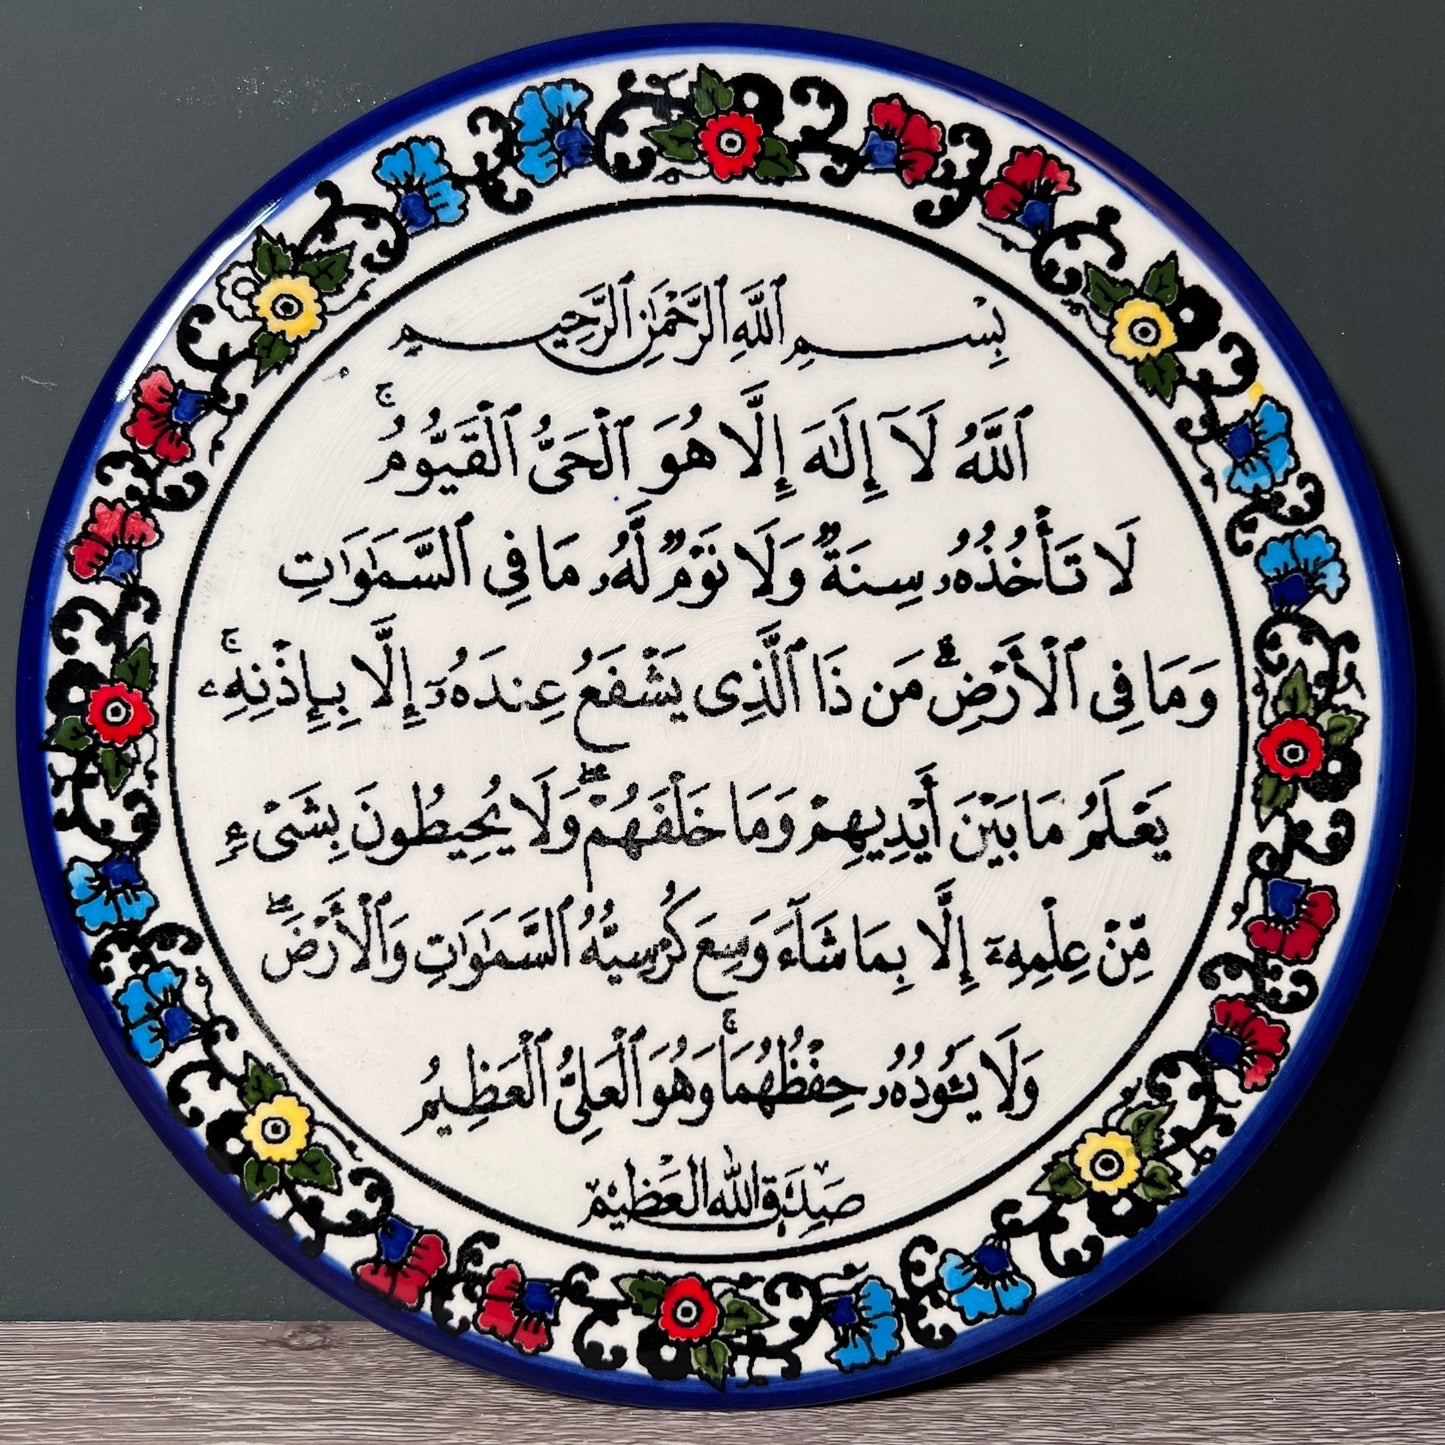 بِسْمِ ٱللَّهِ ٱلرَّحْمَٰنِ ٱلرَّحِيمِ
ٱللَّهُ لَآ إِلَٰهَ إِلَّا هُوَ ٱلْحَىُّ ٱلْقَيُّومُ ۚ
لَا تَأْخُذُهُۥ سِنَةٌ وَلَا نَوْمٌ لَّهُۥ مَا فِى ٱلسَّمَٰوَٰتِ
وَمَا فِى ٱلْأَرْضِ ۗ مَن ذَا ٱلَّذِى يَشْفَعُ عِندَهُۥٓ إِلَّا بِإِذْنِهِۦ ۚ
يَعْلَمُ مَا بَيْنَ أَيْدِيهِمْ وَمَا خَلْفَهُمْ ۖ وَلَا يُحِيطُونَ بِشَىْءٍ
مِّنْ عِلْمِهِۦٓ إِلَّا بِمَا شَآءَ وَسِعَ كُرْسِيُّهُ ٱلسَّمَٰوَٰتِ وَٱلْأَرْضَ ۖ
وَلَا يَـُٔودُهُۥ حِفْظُهُمَا ۚ وَهُوَ ٱلْعَلِىُّ ٱلْعَظِيمُ
صَدَقَ الله الْعَظِيْم